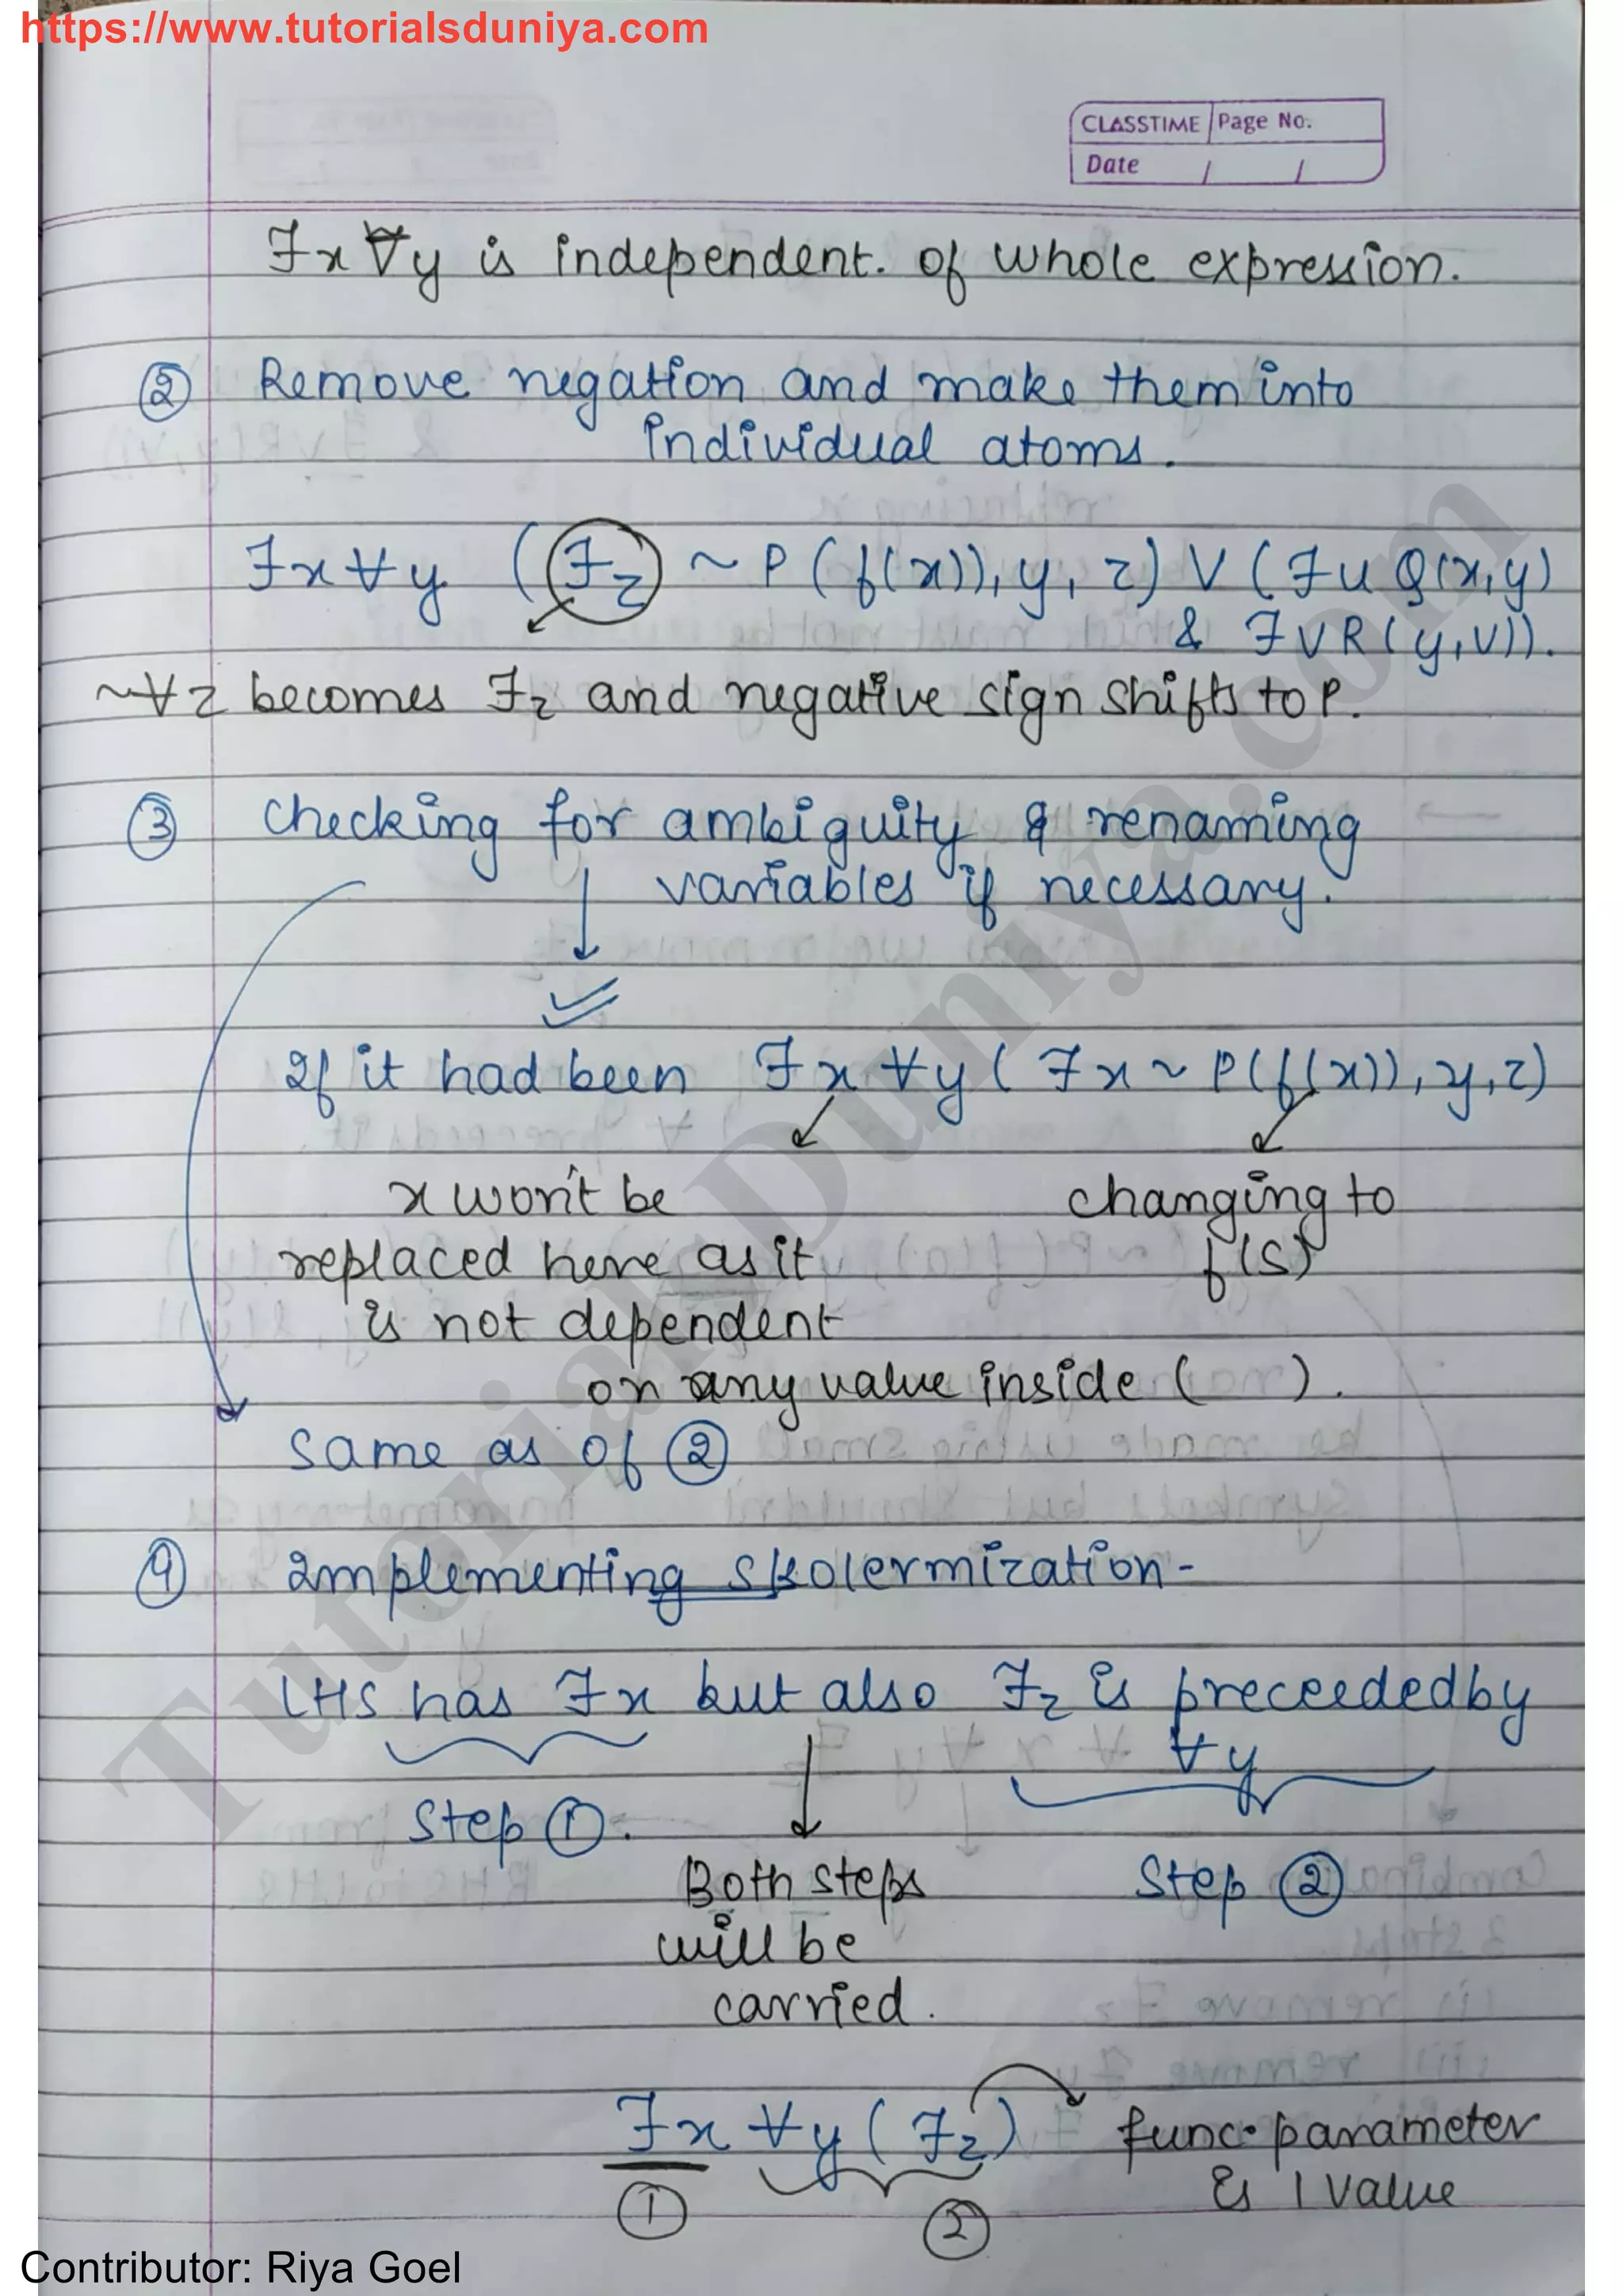 https://www.tutorialsduniya.com
CLASSTIME Page No.
Date / /
∃x ∀y is independent. of whole expression.
② Remove negation and make them into
individual atoms.
∃x ∀ y (∃z ~ P (f(x)), y, z) V (∃u Q(x,y)
& ∃V R(y,V)).
~∀z becomes ∃z and negative sign shifts to P.
③ Checking for ambiguity & renaming
variables if necessary.
If it had been ∃x ∀y ( ∃x ~ P(f(x)), y, z)
x won't be changing to
replaced here as it f(s)
is not dependent
on any value inside ( ).
Same as of ②
④ Implementing skolermization-
LHS has ∃x but also ∃z is preceeded by
∀y
Step ①.
Both steps Step ②
will be
carried.
∃x ∀y ( ∃z) func. parameter
is 1 value
① ②
TutorialsDuniya.com
Contributor: Riya Goel